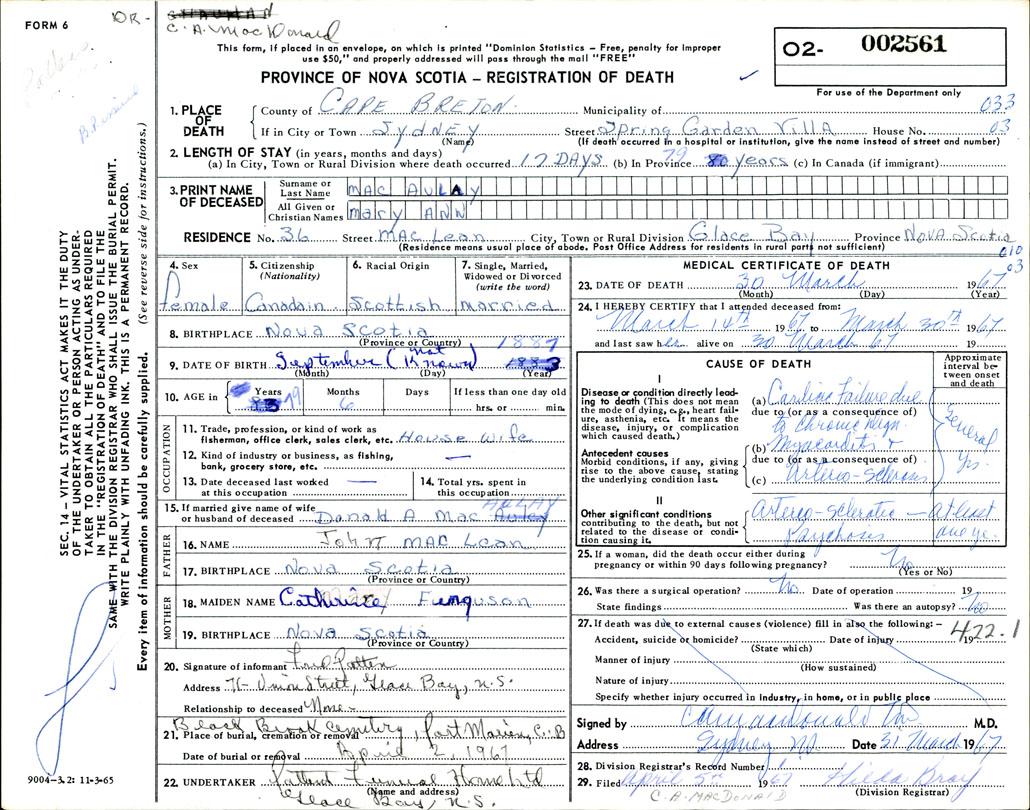 FORM 6
DR -
C. A. MacDonald
This form, if placed in an envelope, on which is printed "Dominion Statistics – Free, penalty for improper
use $50," and properly addressed will pass through the mail "FREE"
PROVINCE OF NOVA SCOTIA – REGISTRATION OF DEATH
02- 002561
For use of the Department only
1. PLACE OF DEATH
County of CAPE BRETON Municipality of 033
If in City or Town SYDNEY Street Spring Garden Villa House No. 03
(Name) (If death occurred in a hospital or institution, give the name instead of street and number)
2. LENGTH OF STAY (in years, months and days)
(a) In City, Town or Rural Division where death occurred 17 DAYS (b) In Province 79 80 years (c) In Canada (if immigrant)
3. PRINT NAME OF DECEASED
Surname or Last Name MAC AULAY
All Given or Christian Names MARY ANN
RESIDENCE No. 36 Street MacLean City, Town or Rural Division Glace Bay Province Nova Scotia
(Residence means usual place of abode. Post Office Address for residents in rural parts not sufficient)
610
03
4. Sex
female
5. Citizenship (Nationality)
Canadain
6. Racial Origin
Scottish
7. Single, Married, Widowed or Divorced (write the word)
married
8. BIRTHPLACE Nova Scotia
(Province or Country)
1887
9. DATE OF BIRTH September (Not Known) 1883
(Month) (Day) (Year)
10. AGE in Years 79 Months 6 Days If less than one day old
hrs. or min.
OCCUPATION
11. Trade, profession, or kind of work as
fisherman, office clerk, sales clerk, etc. House wife
12. Kind of industry or business, as fishing,
bank, grocery store, etc. —
13. Date deceased last worked
at this occupation —
14. Total yrs. spent in
this occupation
15. If married give name of wife
or husband of deceased Donald A Mac Aulay
FATHER
16. NAME John MacLean
17. BIRTHPLACE Nova Scotia
(Province or Country)
MOTHER
18. MAIDEN NAME Catherine Furguson
19. BIRTHPLACE Nova Scotia
(Province or Country)
20. Signature of informant
Address Union Street, Glace Bay, N.S.
Relationship to deceased None -
Black Brook Cemetery, Port Morien, C.B
21. Place of burial, cremation or removal
Date of burial or removal April 2, 1967
22. UNDERTAKER Patten Funeral Home Ltd
(Name and address)
Glace Bay, N.S.
MEDICAL CERTIFICATE OF DEATH
23. DATE OF DEATH 30 March 1967
(Month) (Day) (Year)
24. I HEREBY CERTIFY that I attended deceased from:
March 14th 1967 to March 30th 1967
and last saw her alive on 30 March 67 19
CAUSE OF DEATH
Approximate interval between onset and death
I
Disease or condition directly leading to death (This does not mean the mode of dying, e.g., heart failure, asthenia, etc. It means the disease, injury, or complication which caused death.)
(a) Cardiac Failure due
due to (or as a consequence of)
to Chronic Degn.
Antecedent causes
Morbid conditions, if any, giving rise to the above cause, stating the underlying condition last.
(b) Myocarditis &
due to (or as a consequence of)
(c) Arterio-Sclerosis
Several Yrs.
II
Other significant conditions contributing to the death, but not related to the disease or condition causing it.
Arterio-Sclerotic Psychosis — At least one yr.
25. If a woman, did the death occur either during
pregnancy or within 90 days following pregnancy? No
(Yes or No)
26. Was there a surgical operation? No Date of operation 19
State findings Was there an autopsy? No
27. If death was due to external causes (violence) fill in also the following: –
422.1
Accident, suicide or homicide? Date of injury 19
(State which)
Manner of injury
(How sustained)
Nature of injury
Specify whether injury occurred in industry, in home, or in public place
Signed by C A MacDonald M.D.
Address Sydney NS Date 31 March 1967
28. Division Registrar's Record Number
29. Filed April 5th 1967 Hilda Bray
(Division Registrar)
C. A. MACDONALD
SEC. 14 – VITAL STATISTICS ACT MAKES IT THE DUTY
OF THE UNDERTAKER OR PERSON ACTING AS UNDER-
TAKER TO OBTAIN ALL THE PARTICULARS REQUIRED
IN THE "REGISTRATION OF DEATH" AND TO FILE THE
SAME WITH THE DIVISION REGISTRAR WHO SHALL ISSUE THE BURIAL PERMIT.
WRITE PLAINLY WITH UNFADING INK. THIS IS A PERMANENT RECORD.
Every item of information should be carefully supplied. (See reverse side for instructions.)
9004-3.2: 11-3-65